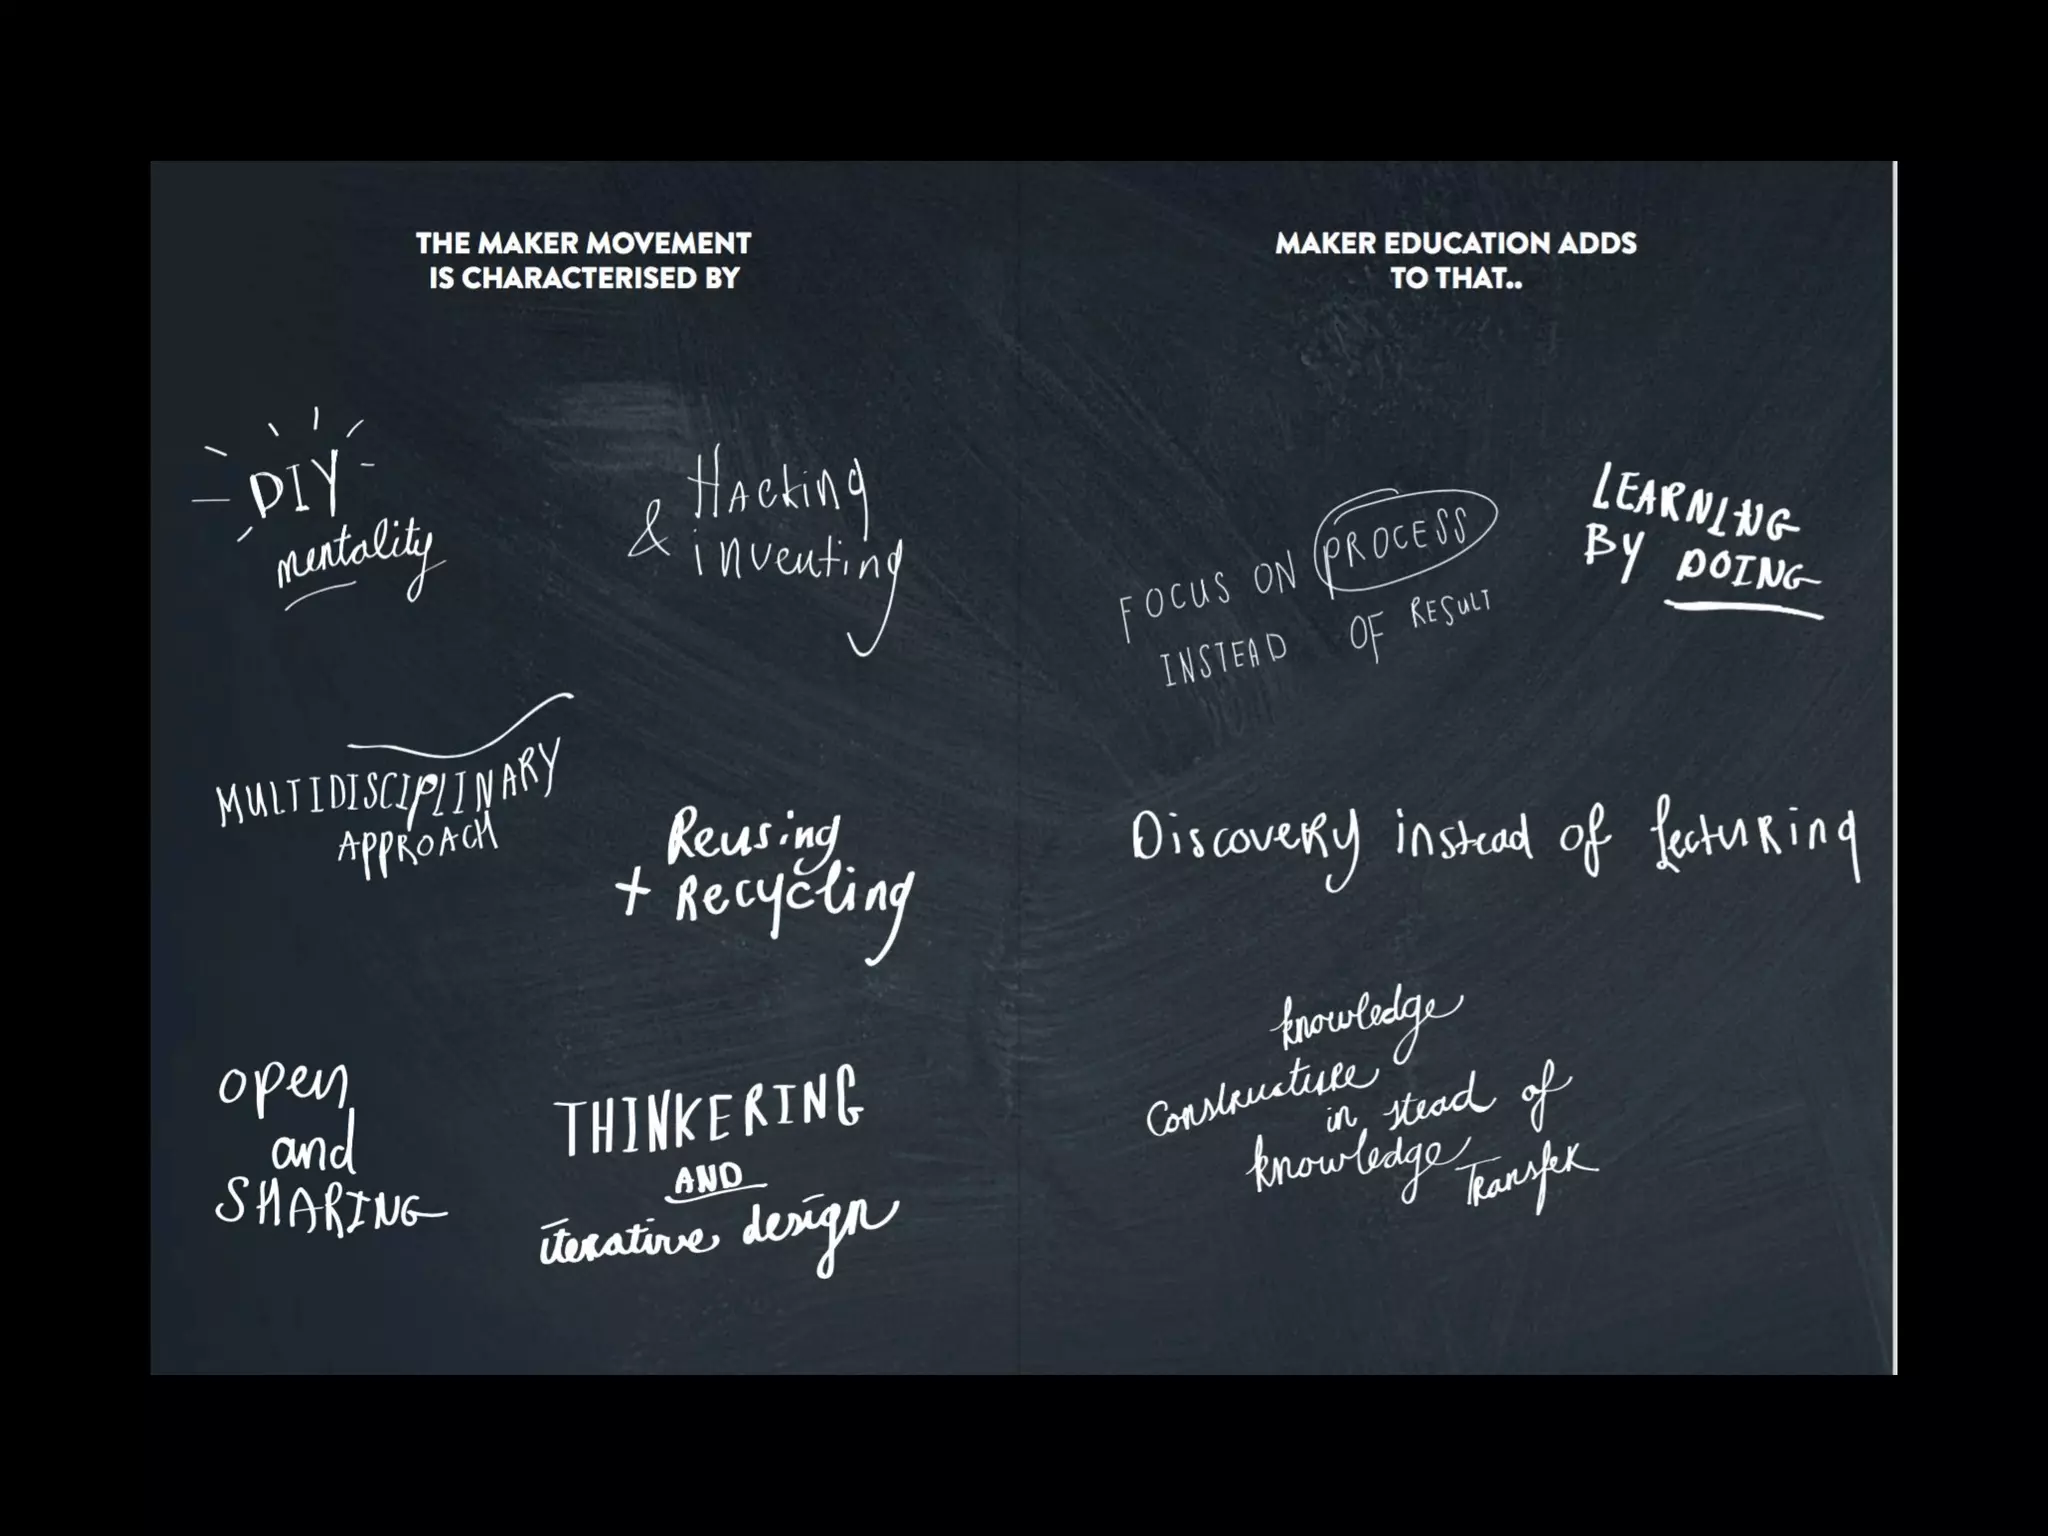 THE MAKER MOVEMENT
IS CHARACTERISED BY
DIY
mentality
Hacking
& inventing
MULTIDISCIPLINARY
APPROACH
Reusing
+ Recycling
open
and
SHARING
THINKERING
AND
iterative design
MAKER EDUCATION ADDS
TO THAT..
FOCUS ON PROCESS
INSTEAD OF RESULT
LEARNING
BY DOING
Discovery instead of lecturing
knowledge
Constructure
in stead of
knowledge Transfer